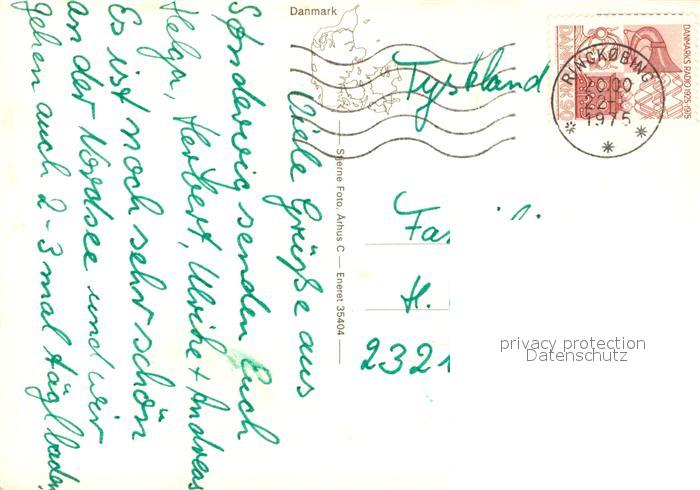 Danmark
Viele Grüße aus
Søndervig senden Euch
Helga, Herbert, Ulrike + Andreas
Es ist noch sehr schön
an der Nordsee und wir
gehen auch 2-3 mal tägl baden
Stjerne Foto, Århus C — Eneret 35404
Tyskland
DANMARKS RADIO 1925-1975
DANMARK 90
RINGKØBING
20.00
1975
H.
2321
privacy protection
Datenschutz